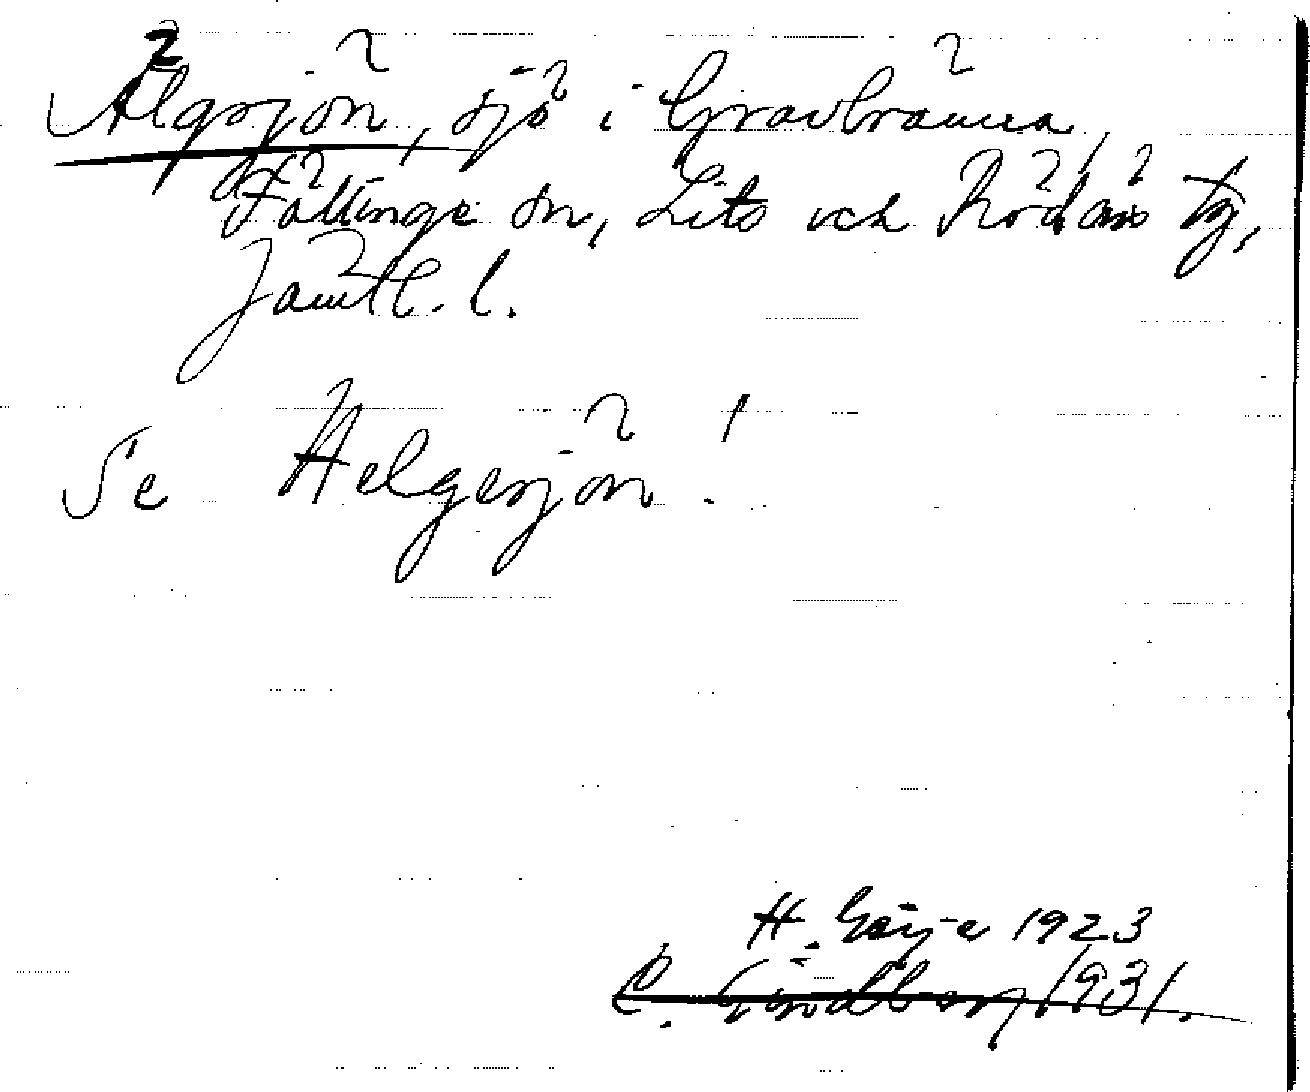 Älgsjön, sjö i Gravbränna,
Föllinge sn, Lits och Rödöns tg,
Jämtl. l.
Se Helgesjön!
H. Geijer 1923
Lindberg 1931.